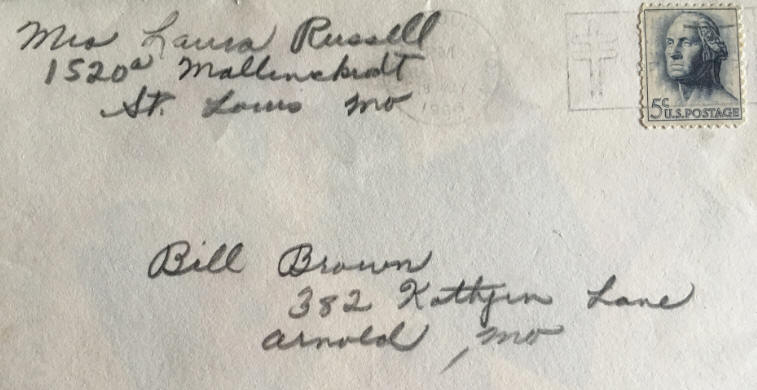 Mrs Laura Russell
1520a Mallinckrodt
St. Louis Mo
5¢
U.S. POSTAGE
Bill Brown
382 Kathjen Lane
Arnold, Mo